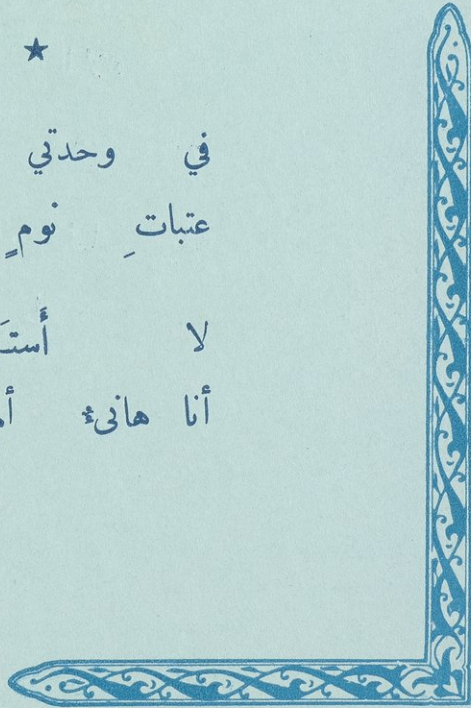 في وحدتي
عتباتِ نومٍ
لا
أنا هانىءٌ